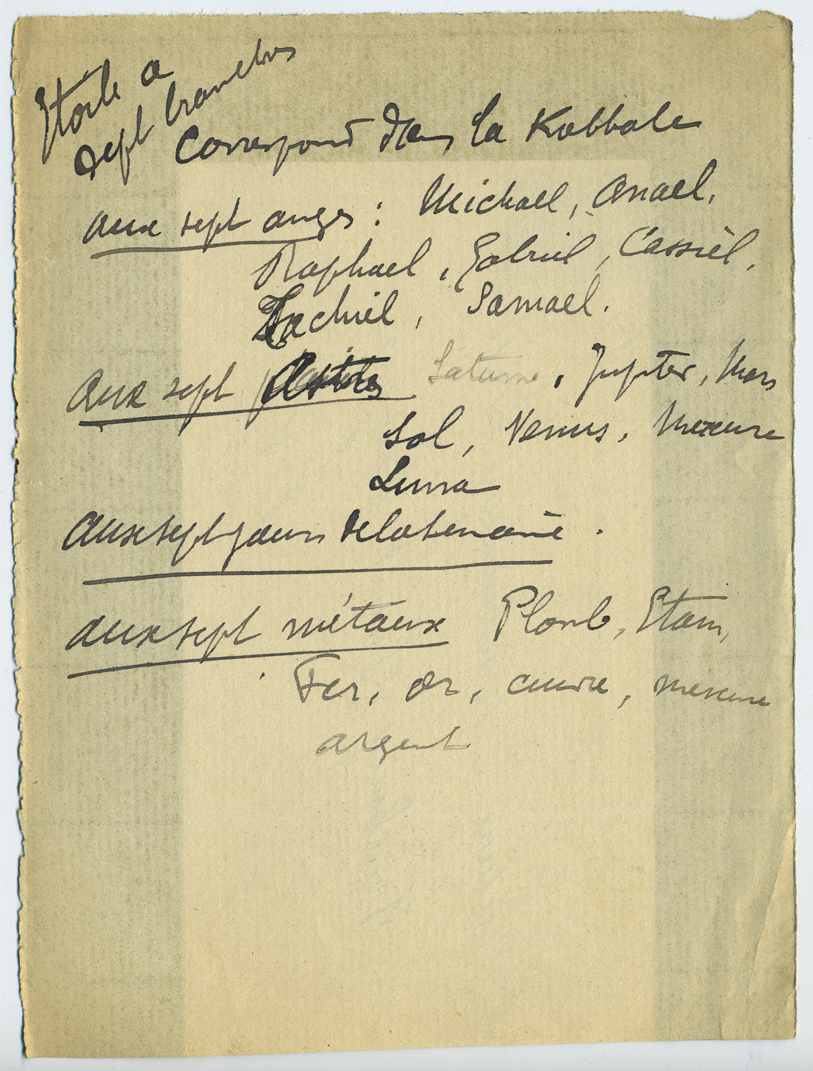 Etoile a
sept branches
correspond dans la Kabbale
aux sept anges : Michael, Anael,
Raphael, Gabriel, Cassiel,
Zachiel, Samael.
Aux sept Astres Saturne, Jupiter, Mars
Sol, Venus, Mercure
Luna
Aux sept jours de la semaine.
aux sept métaux Plomb, Etain,
Fer, or, cuivre, mercure
argent